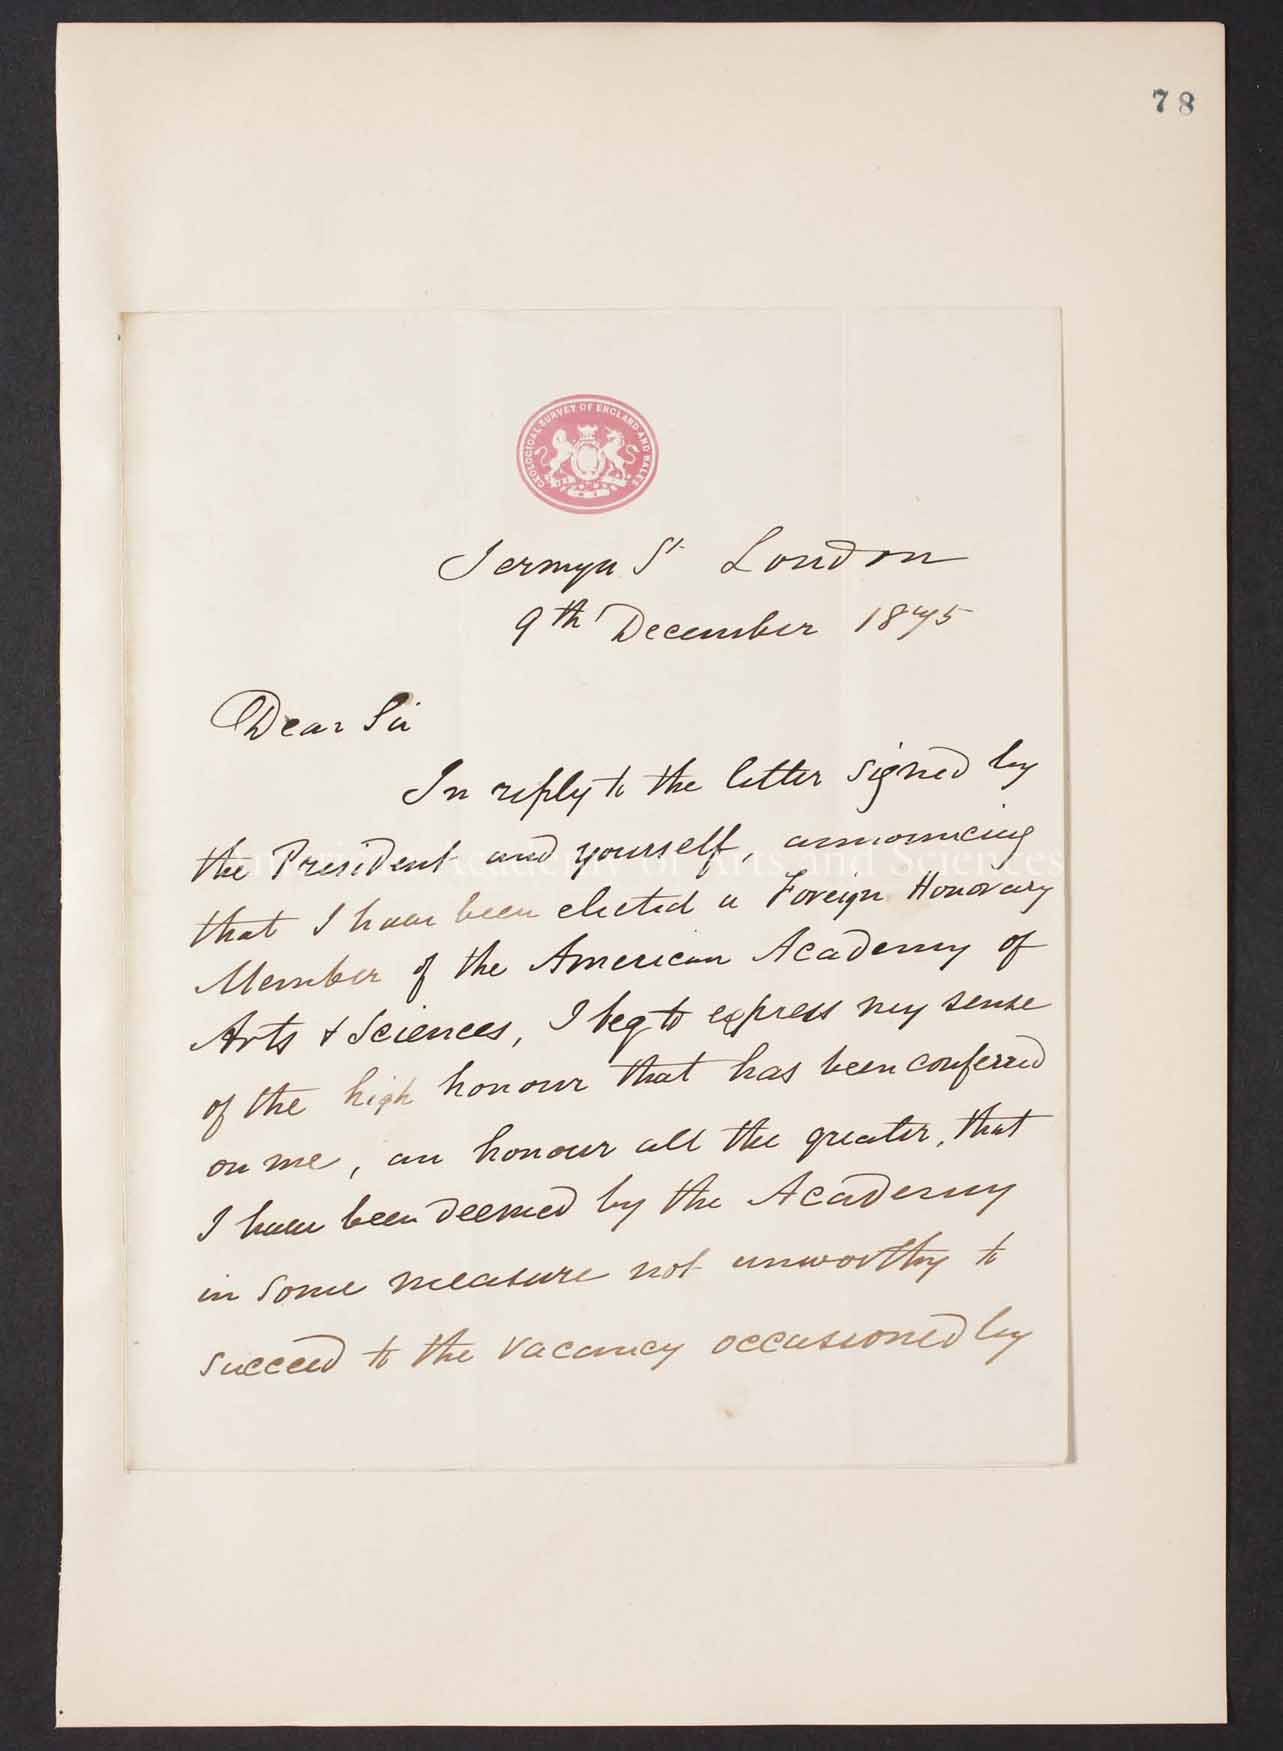 78
GEOLOGICAL SURVEY OF ENGLAND AND WALES
Jermyn St London
9th December 1875
Dear Sir
In reply to the letter signed by
the President and yourself, announcing
American Academy of Arts and Sciences
that I have been elected a Foreign Honorary
Member of the American Academy of
Arts & Sciences, I beg to express my sense
of the high honour that has been conferred
on me, an honour all the greater, that
I have been deemed by the Academy
in some measure not unworthy to
succeed to the vacancy occasioned by